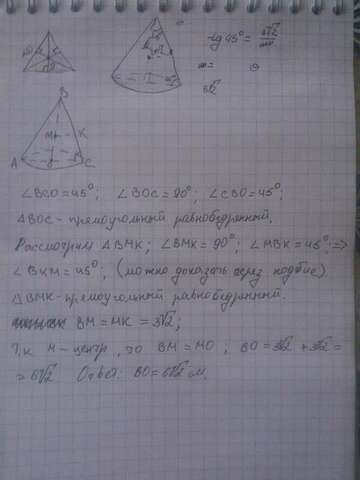 tg 45° = 3√2
3√2
B
M
K
A
C
∠BCO = 45°; ∠BOC = 90°; ∠CBO = 45°;
ΔBOC - прямоугольный равнобедренный.
Рассмотрим ΔBMK; ∠BMK = 90°; ∠MBK = 45°; =>
∠BKM = 45°; (можно доказать через подобие)
ΔBMK - прямоугольный равнобедренный.
BM = MK = 3√2;
Т.к M - центр, то BM = MO; BO = 3√2 + 3√2 =
= 6√2 Ответ: BO = 6√2 см.